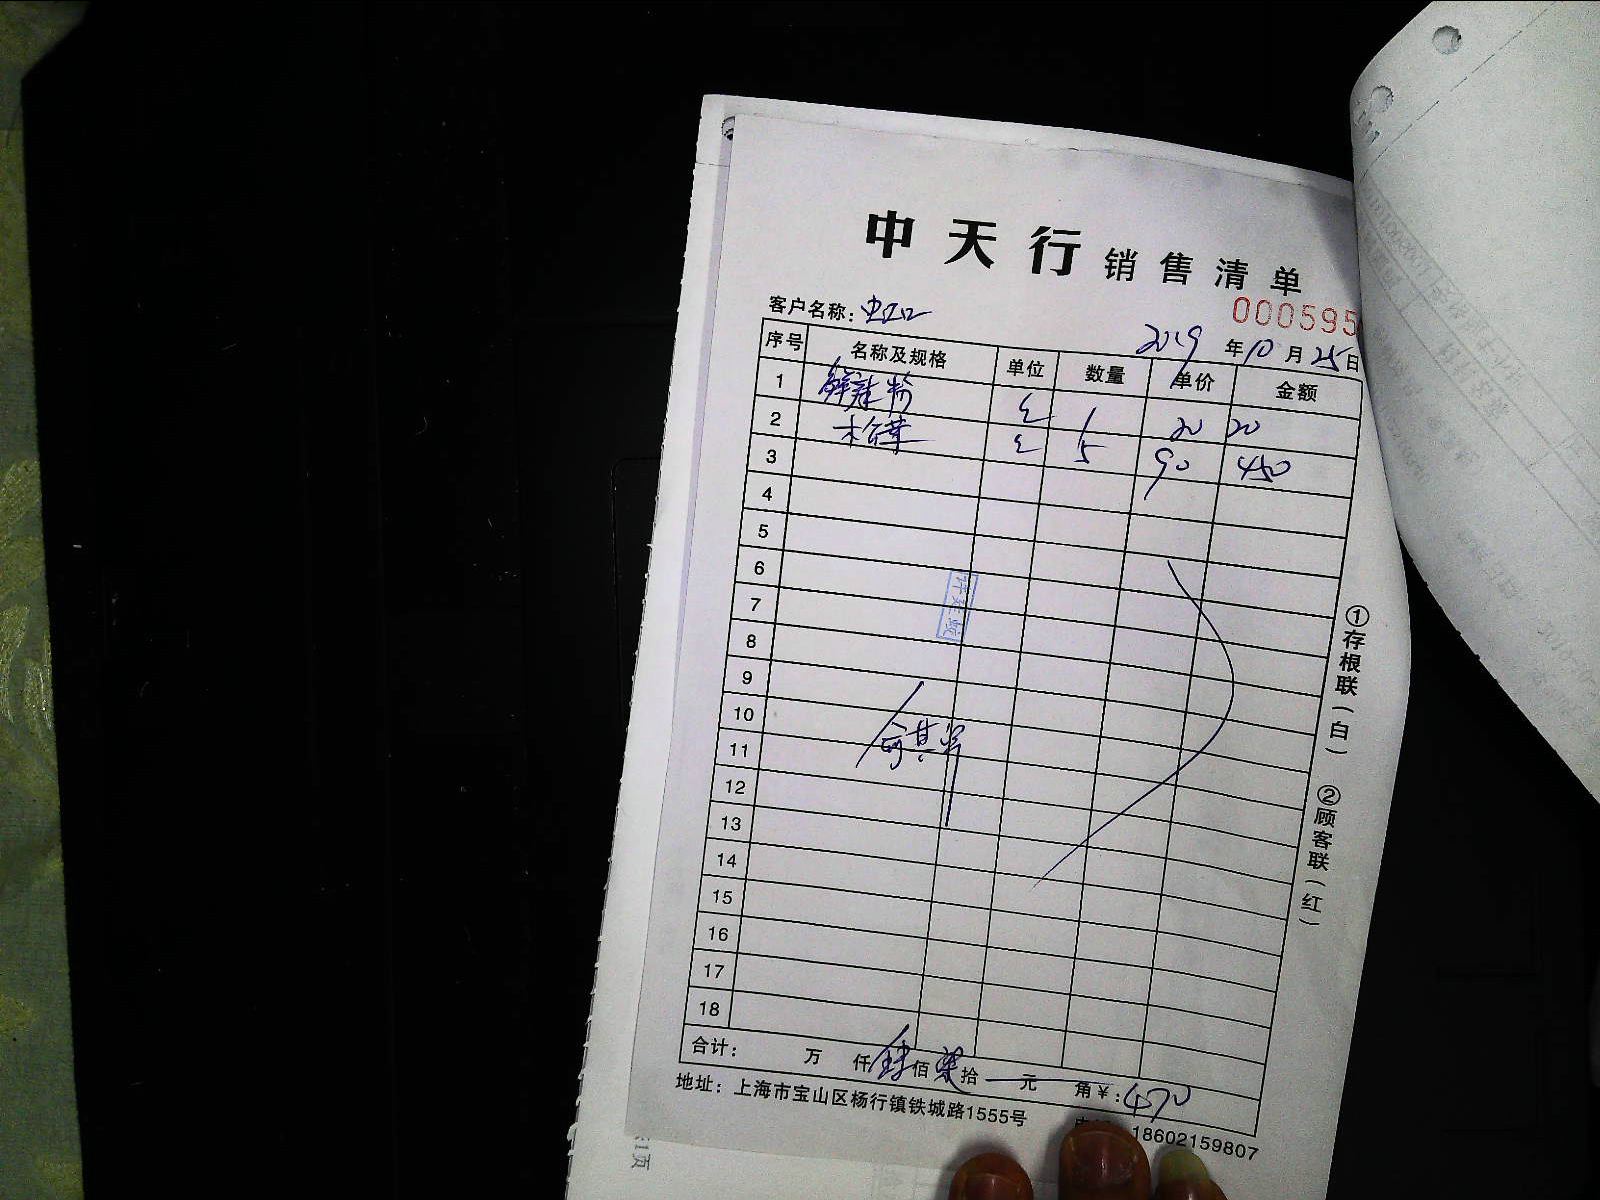 中天行 销售清单
000595
客户名称：虹口 2019年10月25日
序号 名称及规格 单位 数量 单价 金额
1 鲜辣粉 包 1 20 20
2 木松茸 包 5 90 450
3
4
5
6
7
8
9
10
11
12
13
14
15
16
17
18
合计： 万 仟 肆 佰 柒 拾 元 角 ¥：470
地址：上海市宝山区杨行镇铁城路1555号 18602159807
①存根联（白） ②顾客联（红）